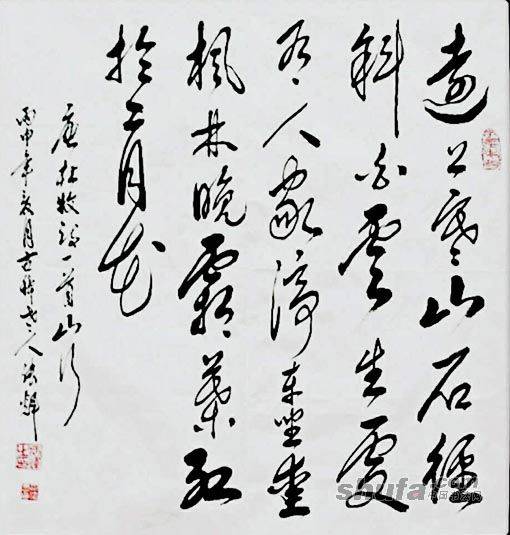 遠上寒山石徑
斜白雲生處
有人家停車坐愛
楓林晚霜葉紅
於二月花
唐杜牧詩一首山行
丙申年夏月古稀老人輝
shufa